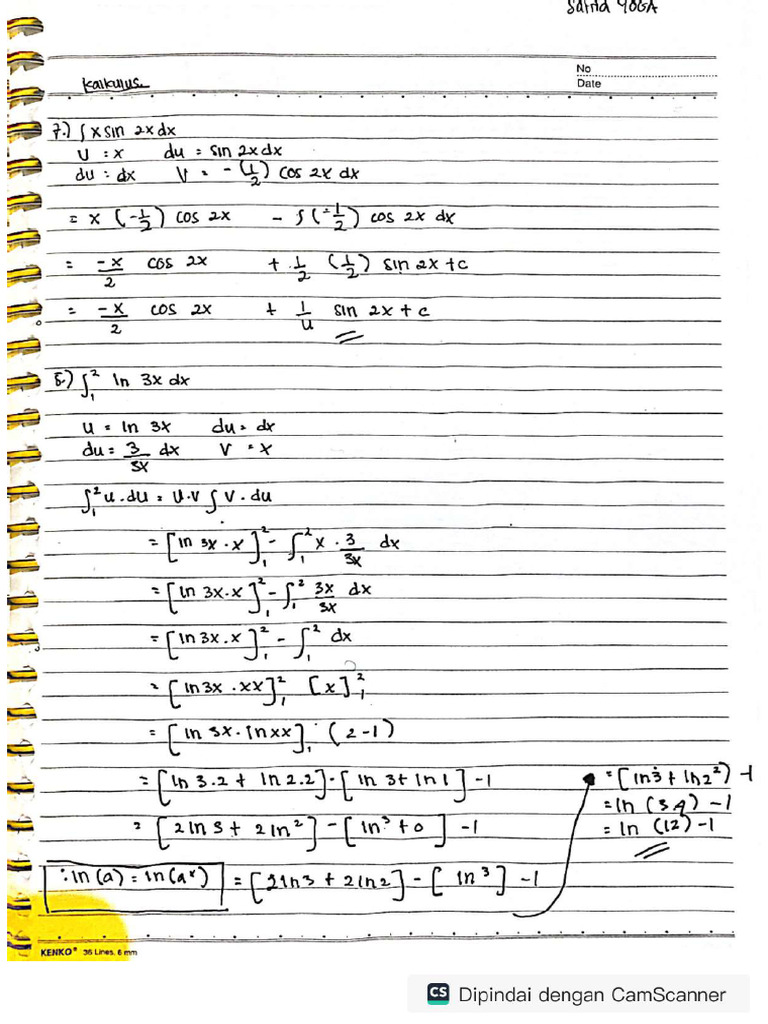 Safna YOGA
No
Kalkulus.
Date
7.) ∫ x sin 2x dx
U = x du = sin 2x dx
du = dx V = -(1/2) cos 2x dx
= x (-1/2) cos 2x - ∫(-1/2) cos 2x dx
= -x/2 cos 2x + 1/2 (1/2) sin 2x + c
= -x/2 cos 2x + 1/4 sin 2x + c
8.) ∫₁² ln 3x dx
u = ln 3x du = dx
du = 3/3x dx V = x
∫₁² u.du = U.V ∫ V.du
= [ln 3x.x]₁² - ∫₁² x . 3/3x dx
= [ln 3x.x]₁² - ∫₁² 3x/3x dx
= [ln 3x.x]₁² - ∫₁² dx
= [ln 3x.xx]₁² [x]₁²
= [ln 3x.lnxx]₁ . (2-1)
= [ln 3.2 + ln 2.2] - [ln 3 + ln 1] - 1
= [2 ln 3 + 2 ln²] - [ln³ + 0] - 1
∴ ln (a) = ln (aˣ) = [2 ln 3 + 2 ln 2] - [ln³] - 1
= [ln 3 + ln 2²) - 1
= ln (3.4) - 1
= ln (12) - 1
KENKO® 36 Lines, 6 mm
CS Dipindai dengan CamScanner